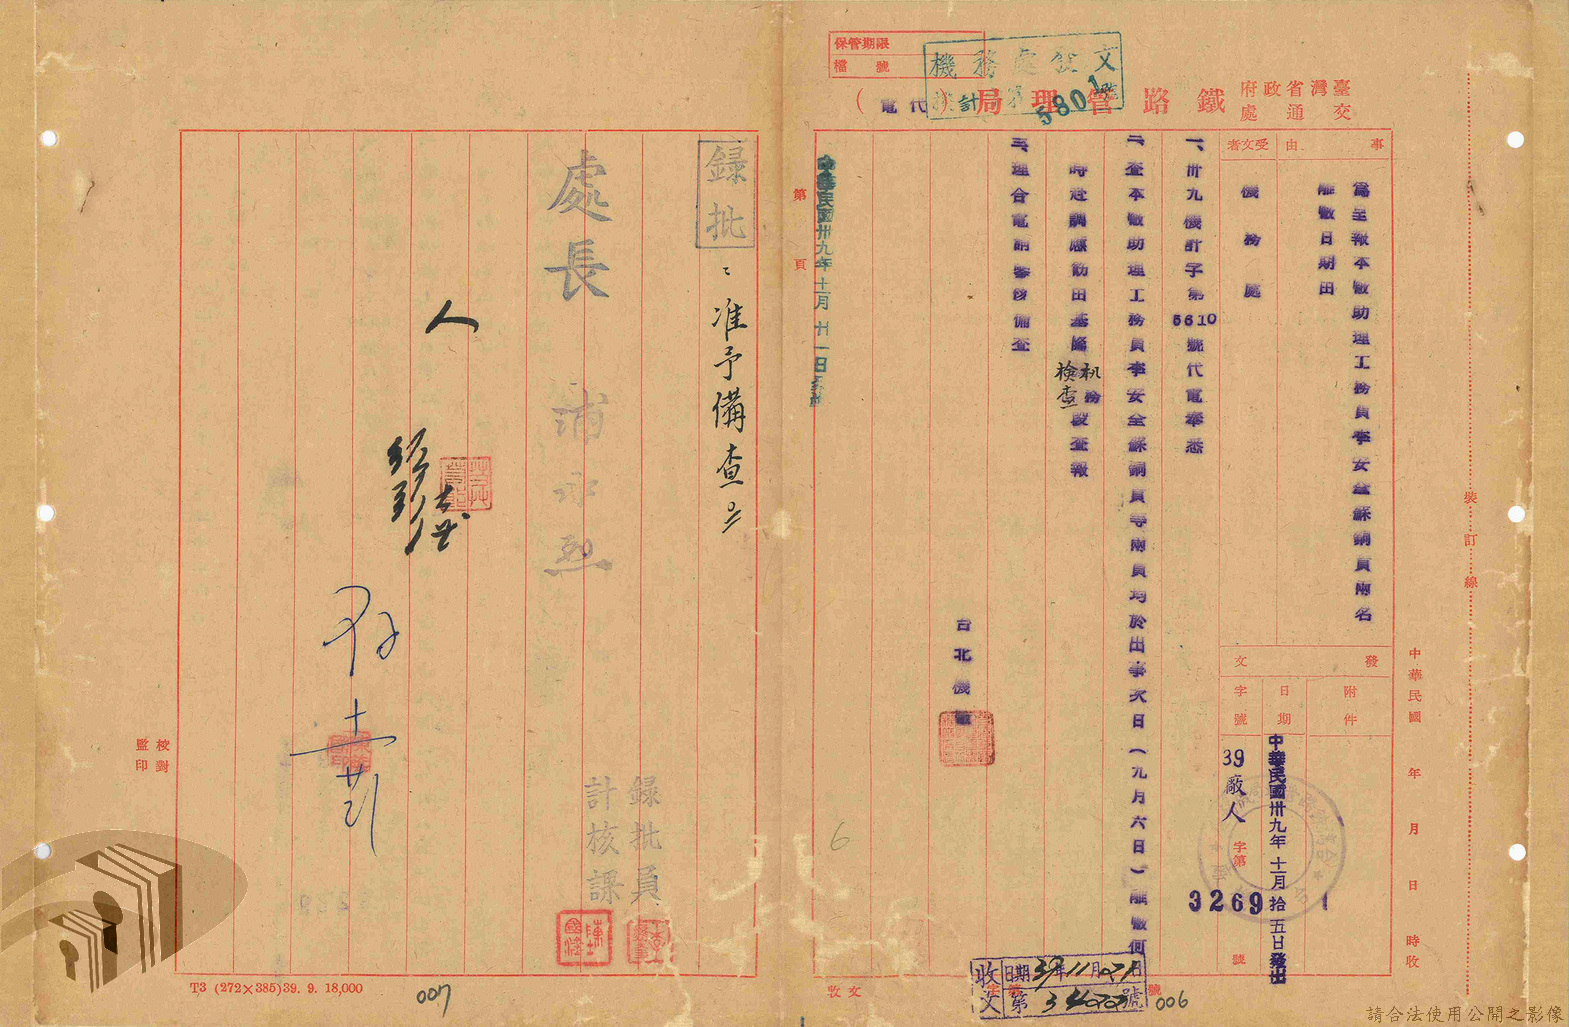 保管期限
檔號
機務處發文
計 第 號
5801
臺灣省政府
交通處
鐵路管理局
（代電）
事由
為呈報本廠助理工務員李安全蘇銅員兩名
離廠日期由
受文者
機務處
發文
附件
日期
中華民國卅九年十一月拾五日發出
字號
39廠人字第3269號
一、卅九機計字第5610號代電奉悉
二、查本廠助理工務員李安全蘇銅員等兩員均於出事次日（九月六日）離廠何
時赴調應飭由基隆机務段查報
檢查
三、理合電請鑒核備查
台北機廠
中華民國卅九年十一月廿一日
第 頁
收文
日期39年11月21日
字第 號
006
裝訂線
中華民國 年 月 日 時收
收文
錄批
准予備查
處長 浦水烈
人
錄批員
計核課
校對
監印
6
T3 (272×385)39. 9. 18,000
007
請合法使用公開之影像